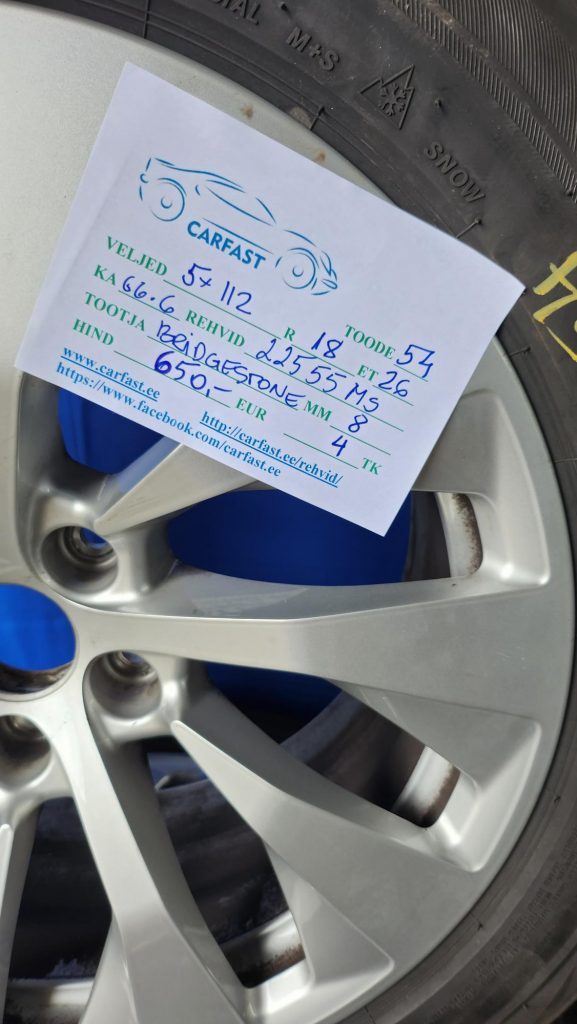 M+S
SNOW
CARFAST
VELJED 5x112 R 18 TOODE 54
KA 66.6 REHVID 22555 MS ET 26
TOOTJA BRIDGESTONE MM 8
HIND 650,- EUR 4 TK
www.carfast.ee http://carfast.ee/rehvid/
https://www.facebook.com/carfast.ee